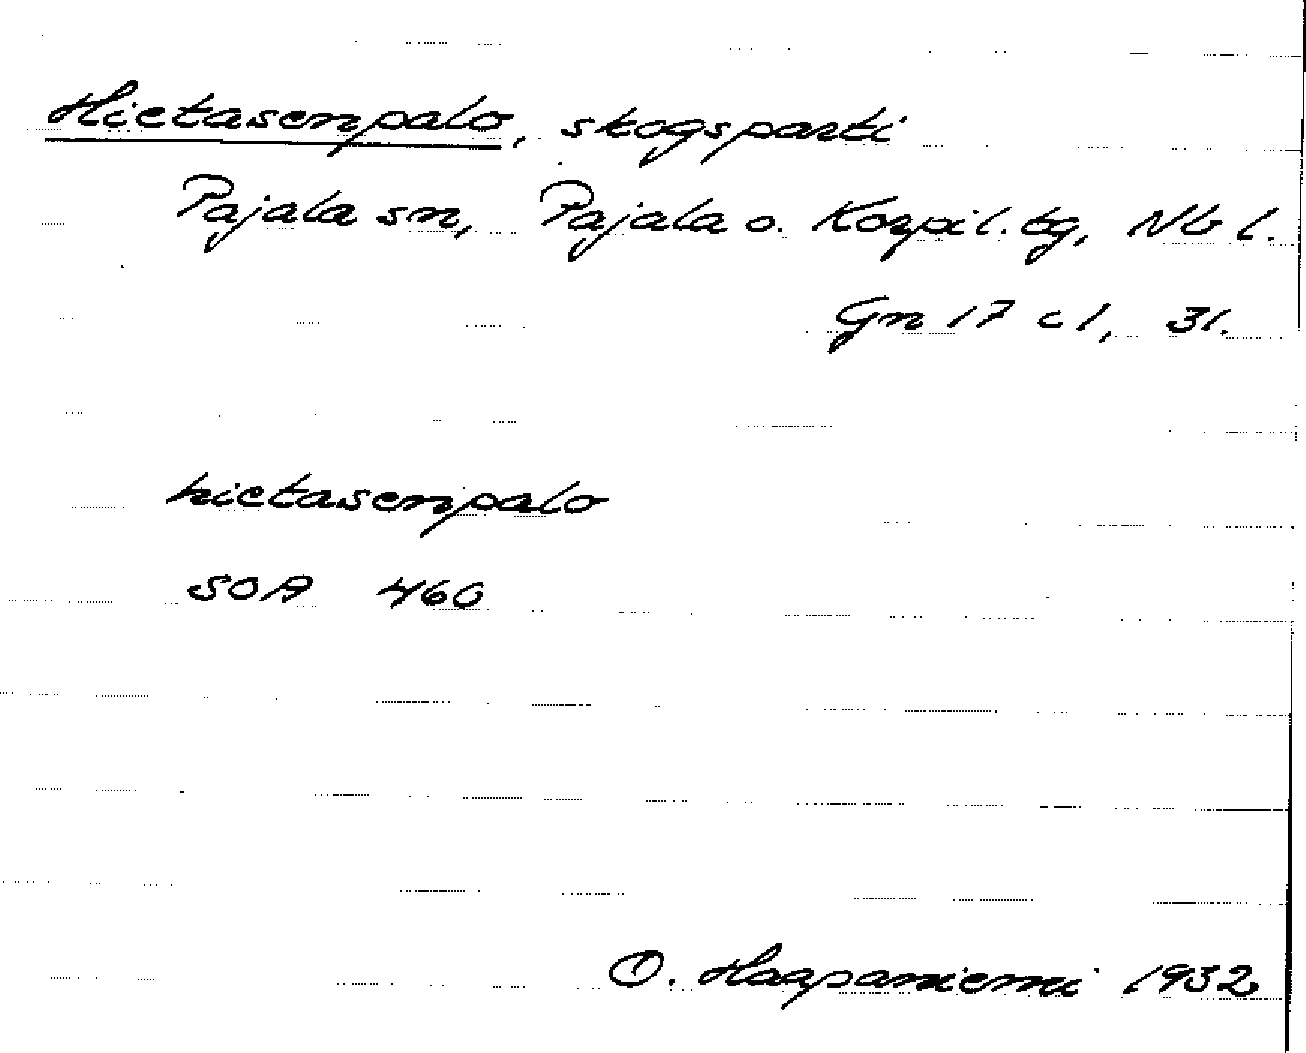 Hietasenpalo, skogsparti
Pajala sn, Pajala o. Korpil. tg, Nb l.
Gn 17 c 1, 31.
hietasenpalo
SOA 460
O. Haapaniemi 1932